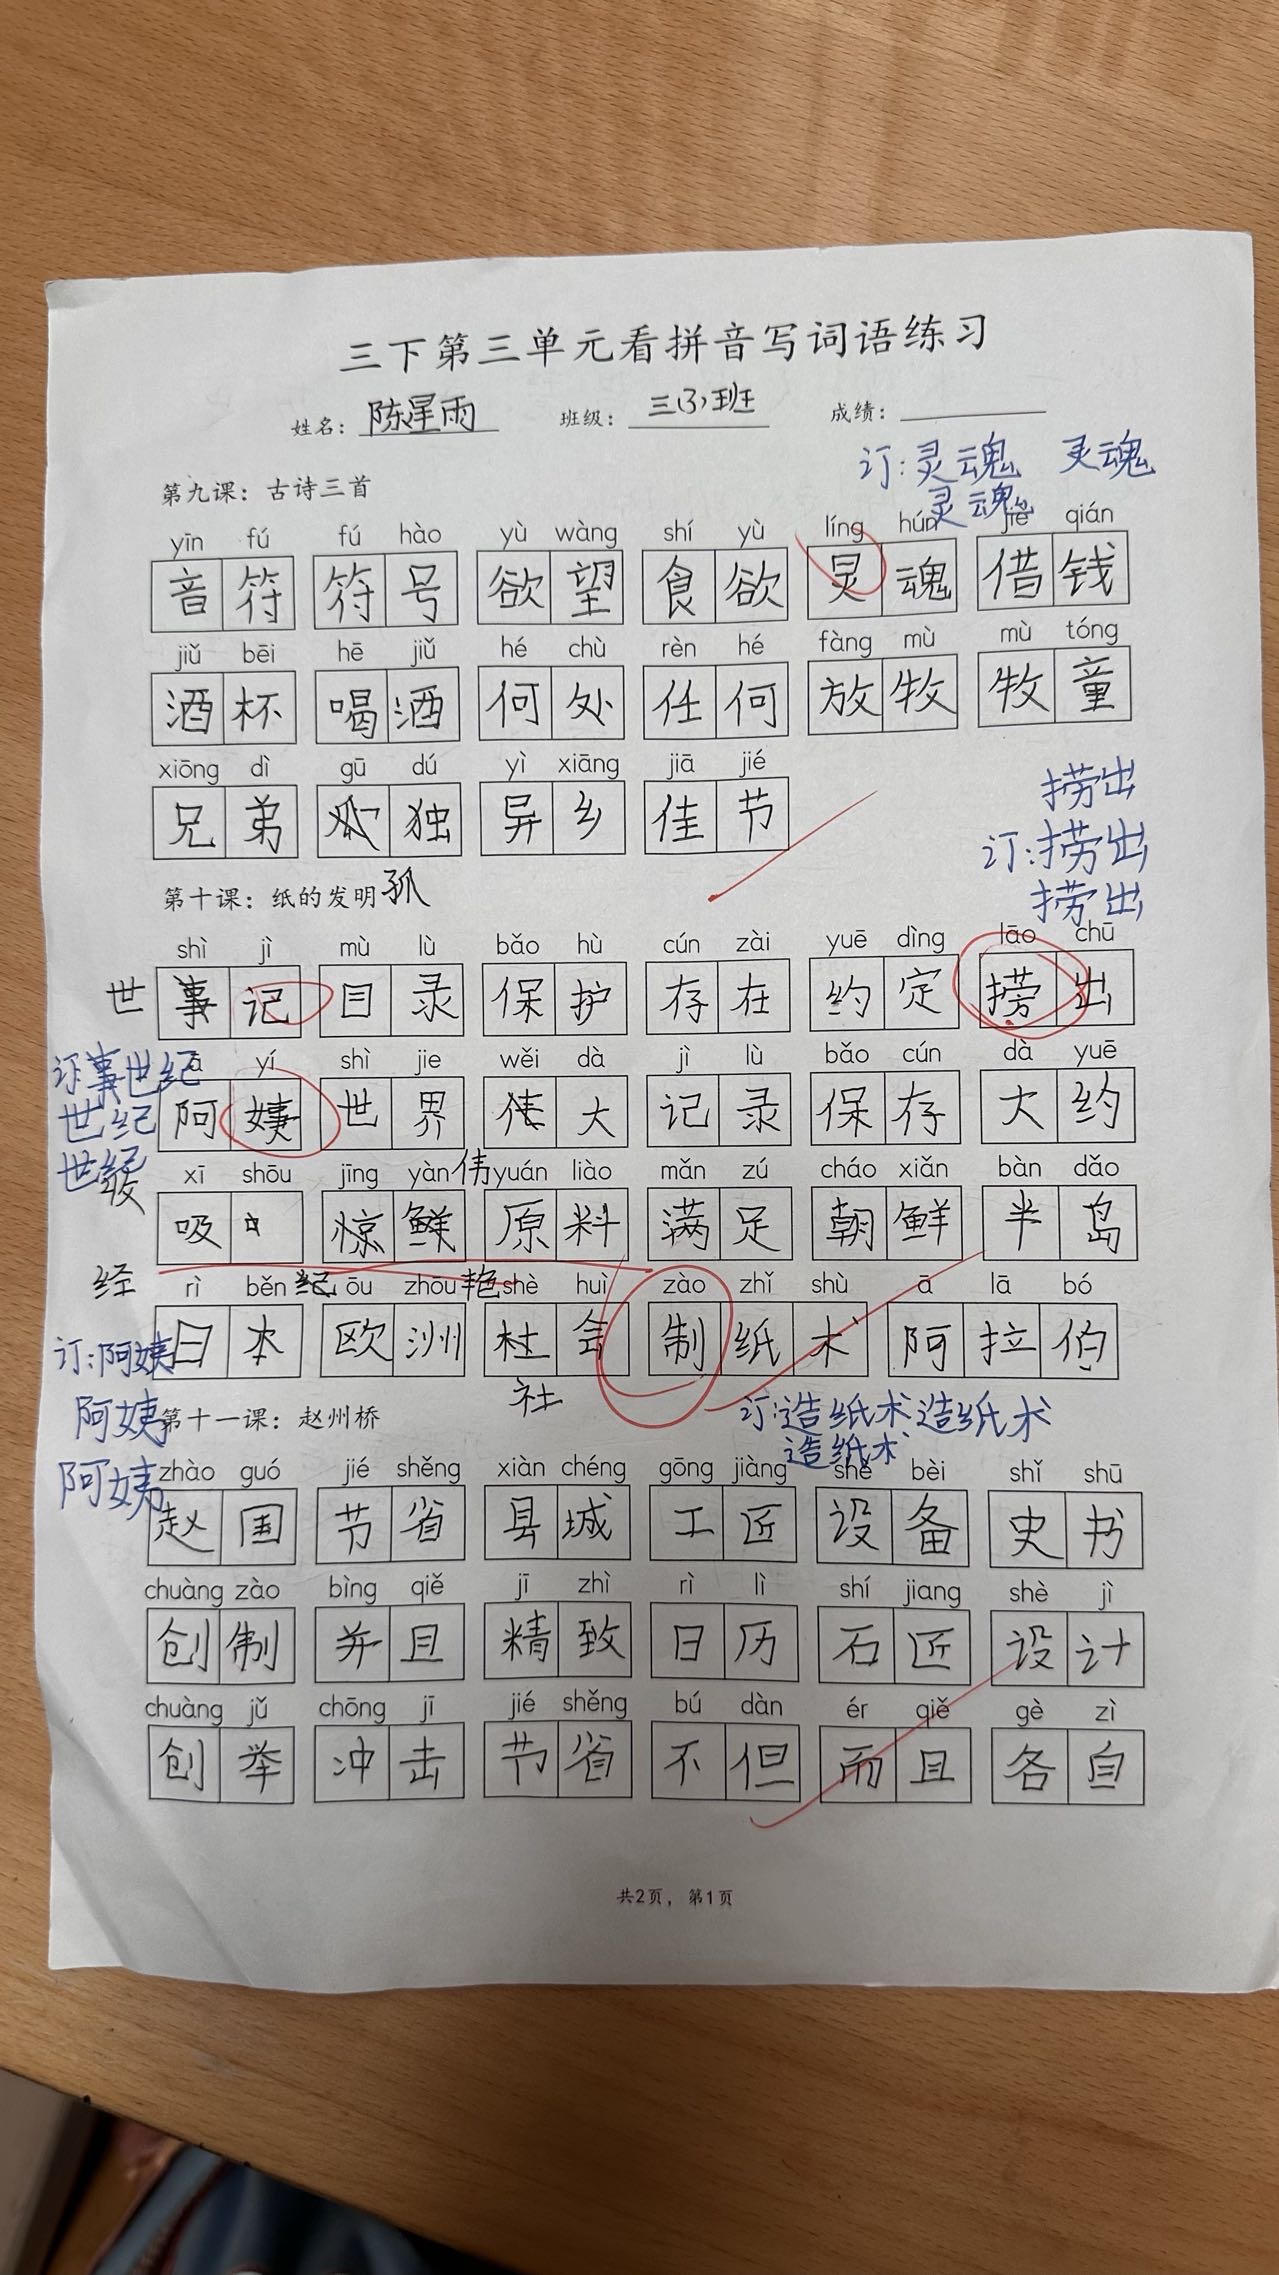 三下第三单元看拼音写词语练习
姓名：陈星雨 班级：三(3)班 成绩：
订：灵魂 灵魂
第九课：古诗三首 灵魂
yīn fú fú hào yù wàng shí yù líng hún jiè qián
音符 符号 欲望 食欲 灵魂 借钱
jiǔ bēi hē jiǔ hé chù rèn hé fàng mù mù tóng
酒杯 喝酒 何处 任何 放牧 牧童
xiōng dì gū dú yì xiāng jiā jié
捞出
兄弟 独 异乡 佳节
订：捞出
第十课：纸的发明 孤
捞出
shì jì mù lù bǎo hù cún zài yuē dìng lāo chū
世 事记 目录 保护 存在 约定 捞出
ā yí shì jie wěi dà jì lù bǎo cún dà yuē
订 事 世纪
阿姨 世界 大 记录 保存 大约
世纪
世纪
xī shōu jīng yàn yuán liào mǎn zú cháo xiǎn bàn dǎo
伟
吸 惊鲜 原料 满足 朝鲜 半岛
经 纪 艳
rì běn ōu zhōu shè huì zào zhǐ shù ā lā bó
日本 欧洲 杜会 制纸术 阿拉伯
订：阿姨
社
阿姨
订：造纸术 造纸术
第十一课：赵州桥
造纸术
阿姨
zhào guó jié shěng xiàn chéng gōng jiàng shè bèi shǐ shū
赵国 节省 县城 工匠 设备 史书
chuàng zào bìng qiě jī zhì rì lì shí jiang shè jì
创制 并且 精致 日历 石匠 设计
chuàng jǔ chōng jī jié shěng bú dàn ér qiě gè zì
创举 冲击 节省 不但 而且 各自
共2页，第1页